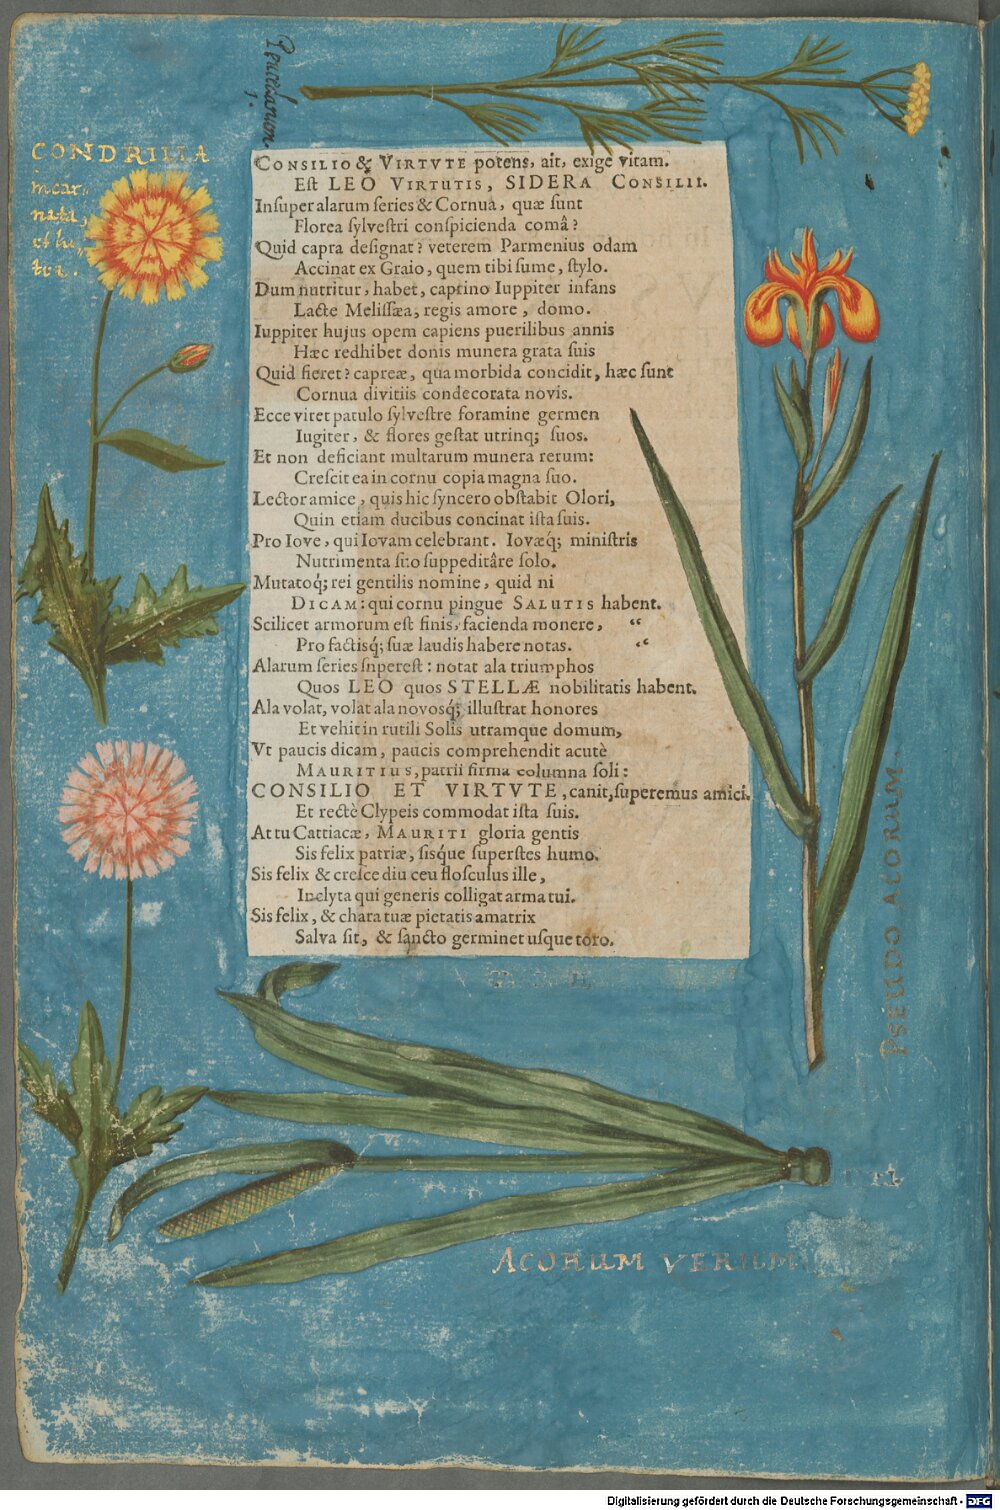 Peucedanum
1.
CONDRILLA
incar,
nata,
et lu,
tea.
CONSILIO & VIRTVTE potens, ait, exige vitam.
Est LEO VIRTUTIS, SIDERA CONSILII.
Insuper alarum series & Cornua, quæ sunt
Florea sylvestri conspicienda comâ?
Quid capra designat? veterem Parmenius odam
Accinat ex Graio, quem tibi sume, stylo.
Dum nutritur, habet, caprino Iuppiter infans
Lacte Melissæa, regis amore, domo.
Iuppiter hujus opem capiens puerilibus annis
Hæc redhibet donis munera grata suis
Quid fieret? capreæ, qua morbida concidit, hæc sunt
Cornua divitiis condecorata novis.
Ecce viret patulo sylvestre foramine germen
Iugiter, & flores gestat utrinq; suos.
Et non deficiant multarum munera rerum:
Crescit ea in cornu copia magna suo.
Lector amice, quis hic syncero obstabit Olori,
Quin etiam ducibus concinat ista suis.
Pro Iove, qui Iovam celebrant. Iovæq; ministris
Nutrimenta suo suppeditâre solo.
Mutatoq; rei gentilis nomine, quid ni
DICAM: qui cornu pingue SALUTIS habent.
Scilicet armorum est finis, facienda monere, “
Pro factisq; suæ laudis habere notas. “
Alarum series superest: notat ala triumphos
Quos LEO quos STELLÆ nobilitatis habent.
Ala volat, volat ala novosq; illustrat honores
Et vehit in rutili Solis utramque domum,
Vt paucis dicam, paucis comprehendit acutè
MAURITIUS, patrii firma columna soli:
CONSILIO ET VIRTVTE, canit, superemus amici.
Et rectè Clypeis commodat ista suis.
At tu Cattiacæ, MAURITI gloria gentis
Sis felix patriæ, sisque superstes humo.
Sis felix & cresce diu ceu flosculus ille,
Inclyta qui generis colligat arma tui.
Sis felix, & chara tuæ pietatis amatrix
Salva sit, & sancto germinet usque toro.
PSEUDO ACORUM.
ACORUM VERUM
Digitalisierung gefördert durch die Deutsche Forschungsgemeinschaft - DFG